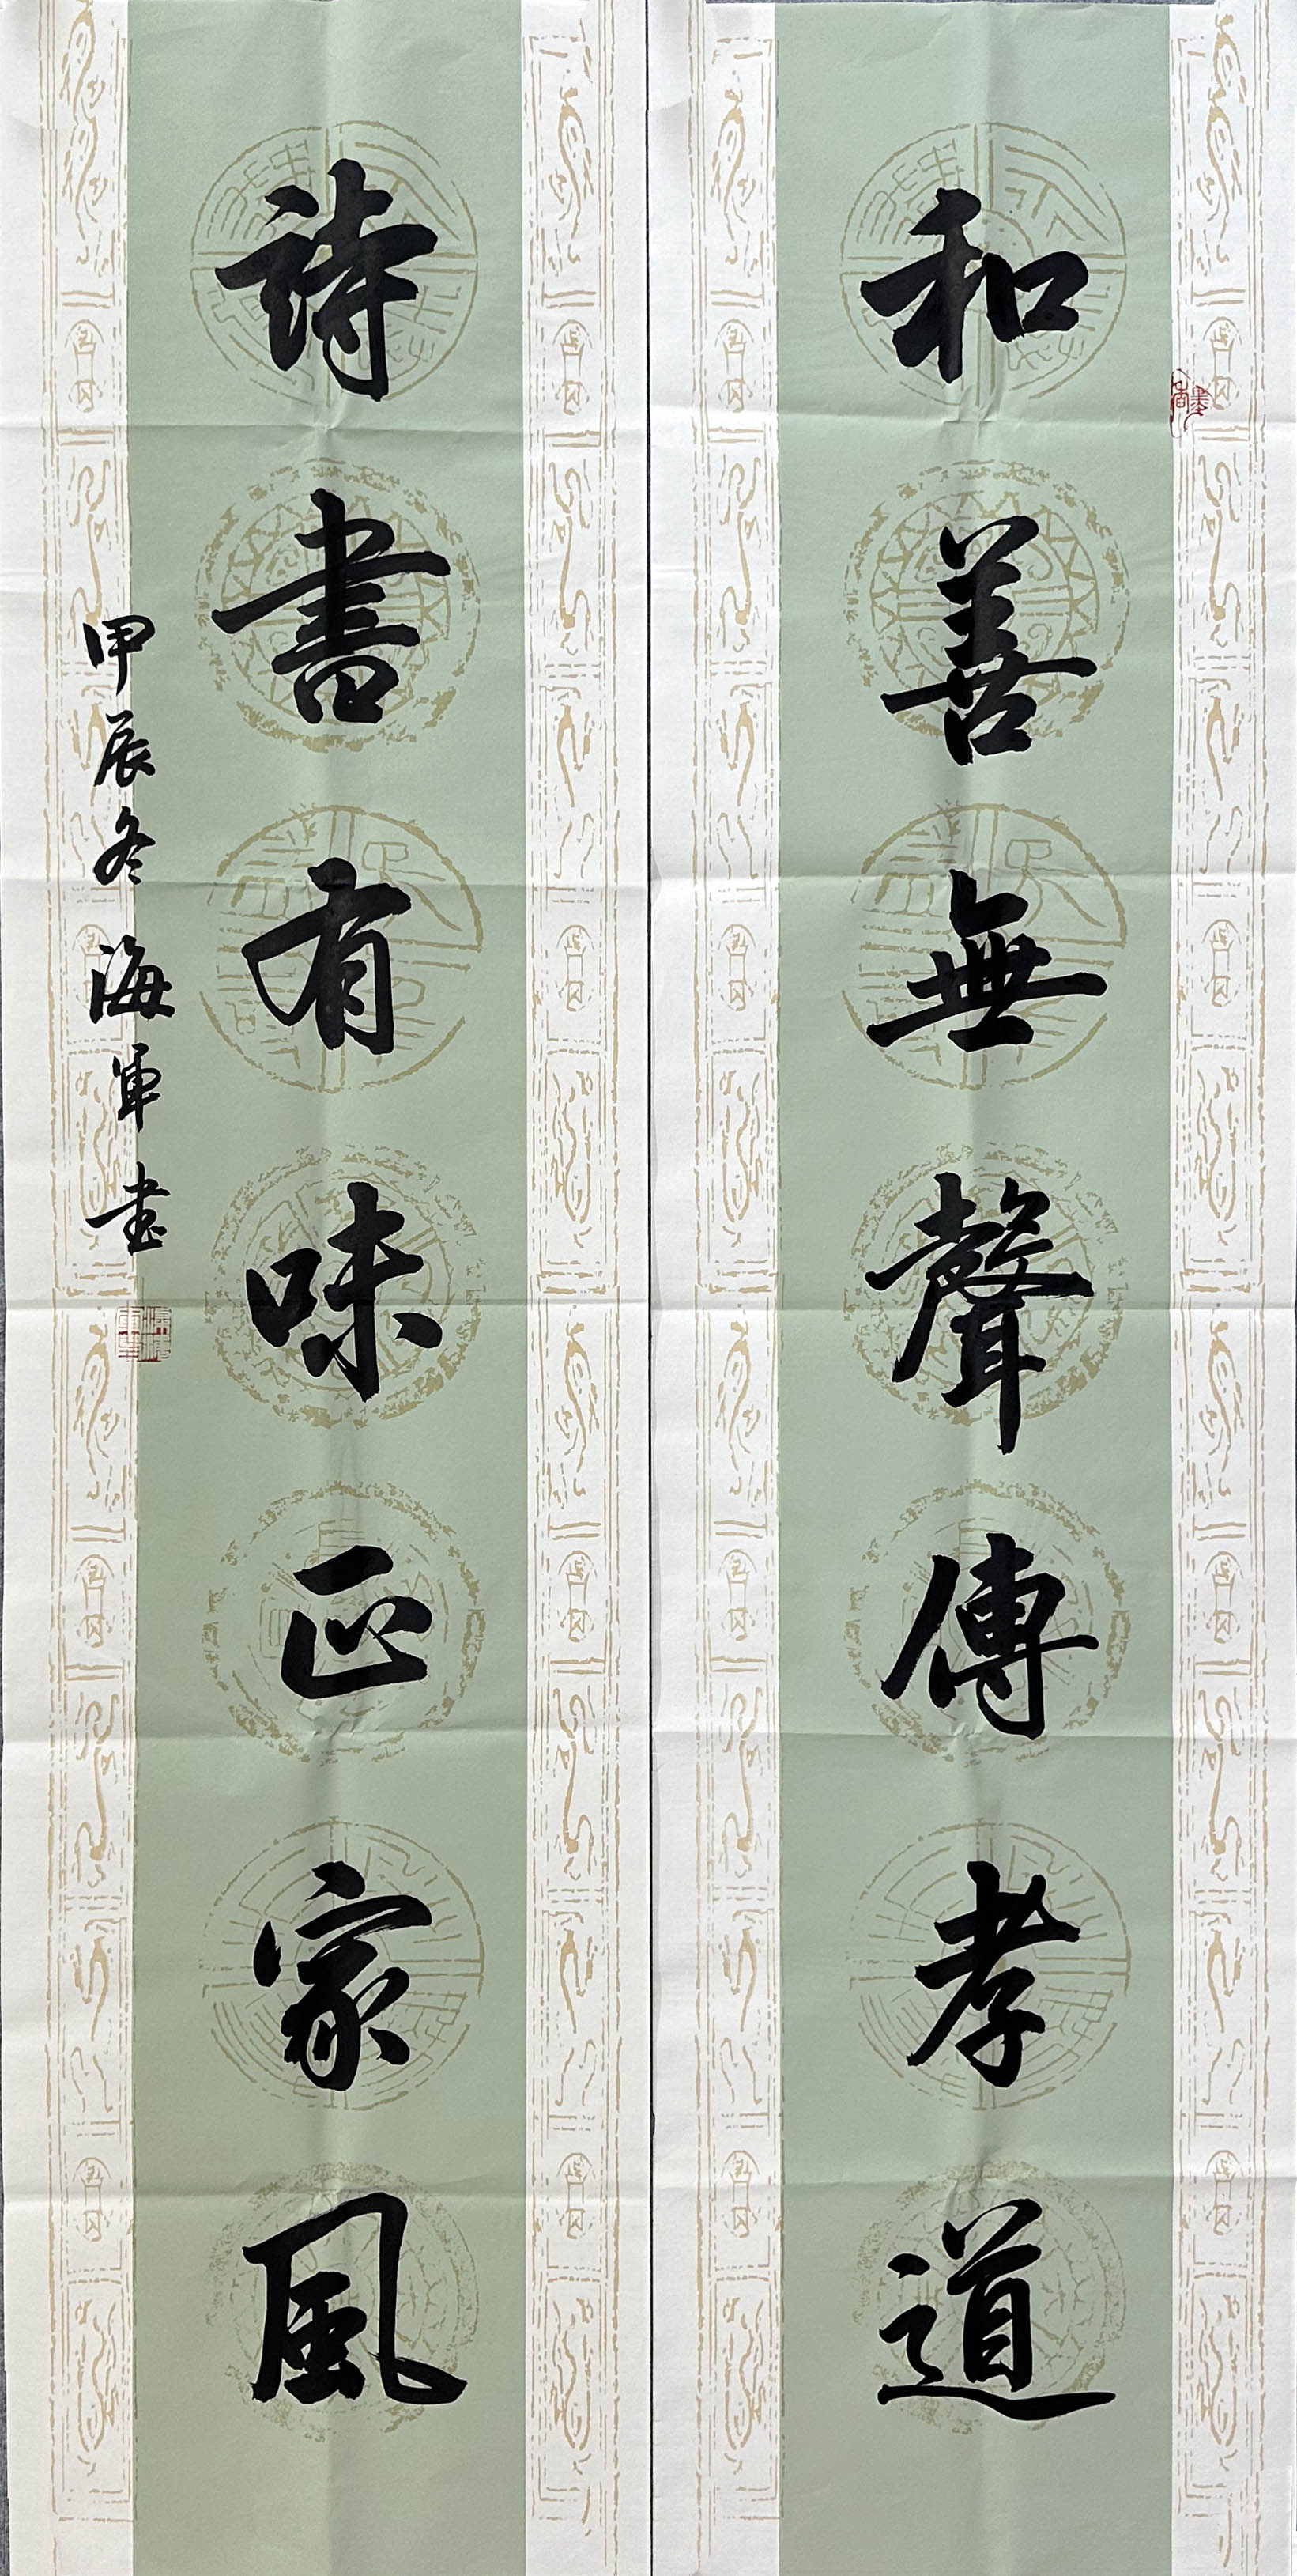 和善無聲傳孝道
詩書有味正家風
甲辰冬海軍書
墨香